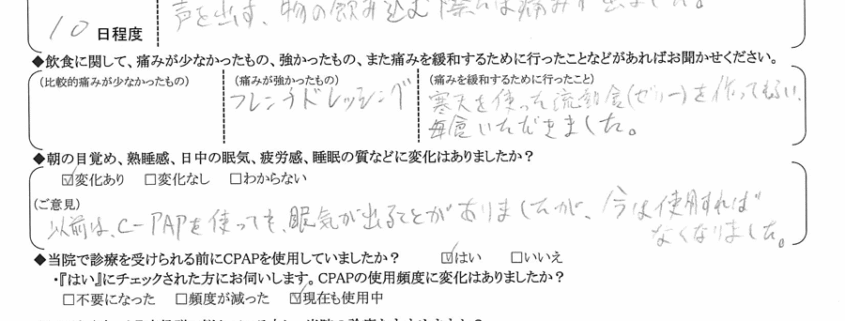 声を出す、物の飲み込む際には痛みが出ました。
10日程度
◆飲食に関して、痛みが少なかったもの、強かったもの、また痛みを緩和するために行ったことなどがあればお聞かせください。
(比較的痛みが少なかったもの) (痛みが強かったもの) (痛みを緩和するために行ったこと)
フレンチドレッシング 寒天を使った流動食(ゼリー)を作ってもらい、
毎食いただきました。
◆朝の目覚め、熟睡感、日中の眠気、疲労感、睡眠の質などに変化はありましたか？
☑変化あり □変化なし □わからない
(ご意見)
以前は、C-PAPを使っても、眠気が出ることがありましたが、今は使用すれば
なくなりました。
◆当院で診療を受けられる前にCPAPを使用していましたか？ ☑はい □いいえ
・『はい』にチェックされた方にお伺いします。CPAPの使用頻度に変化はありましたか？
□不要になった □頻度が減った ☑現在も使用中